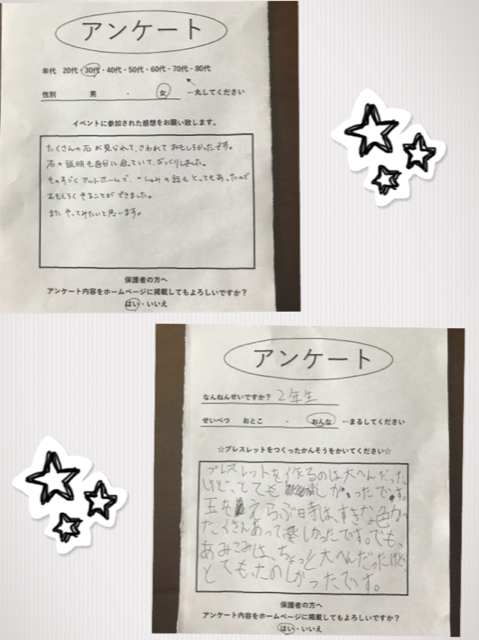 アンケート
年代 20代・30代・40代・50代・60代・70代・80代
性別 男 ・ 女 ←丸してください
イベントに参加された感想をお願い致します。
たくさんの石が見られて、さわれておもしろかったです。
石の説明も
ものすごくアットホームで、
おもしろく することができました。
また やってみたいと思います。
保護者の方へ
アンケート内容をホームページに掲載してもよろしいですか？
はい・いいえ
アンケート
なんねんせいですか？ 2年生
せいべつ おとこ ・ おんな ←まるしてください
☆ブレスレットをつくったかんそうをかいてください☆
ブレスレットを作るのは大へんだった
けど、とても しかったです。
玉をえらぶ時は、すきな色が
たくさんあって楽しかったです。でも、
あみこみは、ちょっと大へんだったけど、
とてもたのしかったです。
保護者の方へ
アンケート内容をホームページに掲載してもよろしいですか？
はい・いいえ